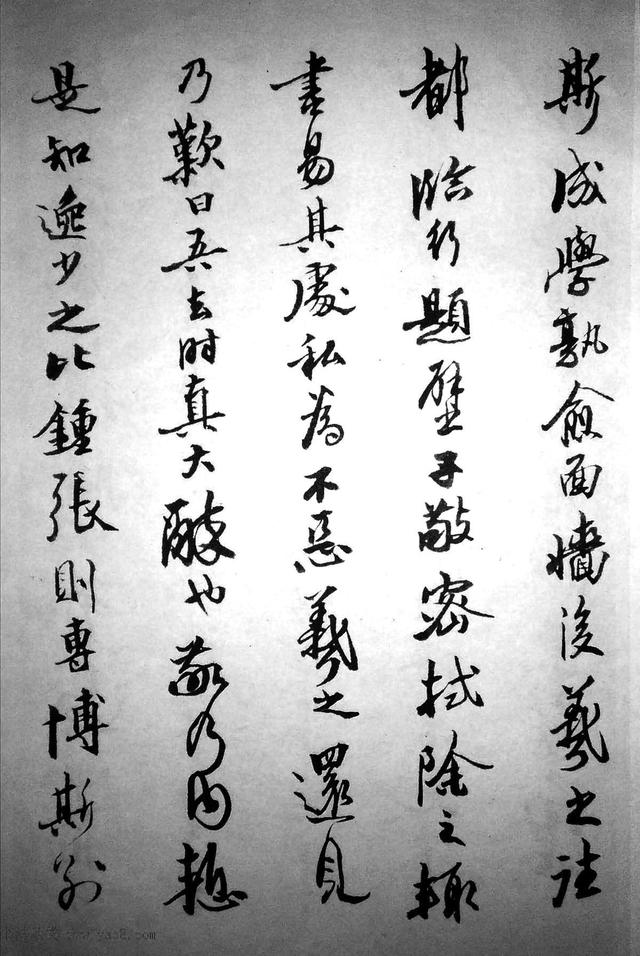 斯成學孰愈面墻後羲之往
都臨行題壁子敬密拭除之輒
書易其處私為不惡羲之還見
乃歎曰吾去時真大醉也敬乃內慙
是知逸少之比鍾張則專博斯別